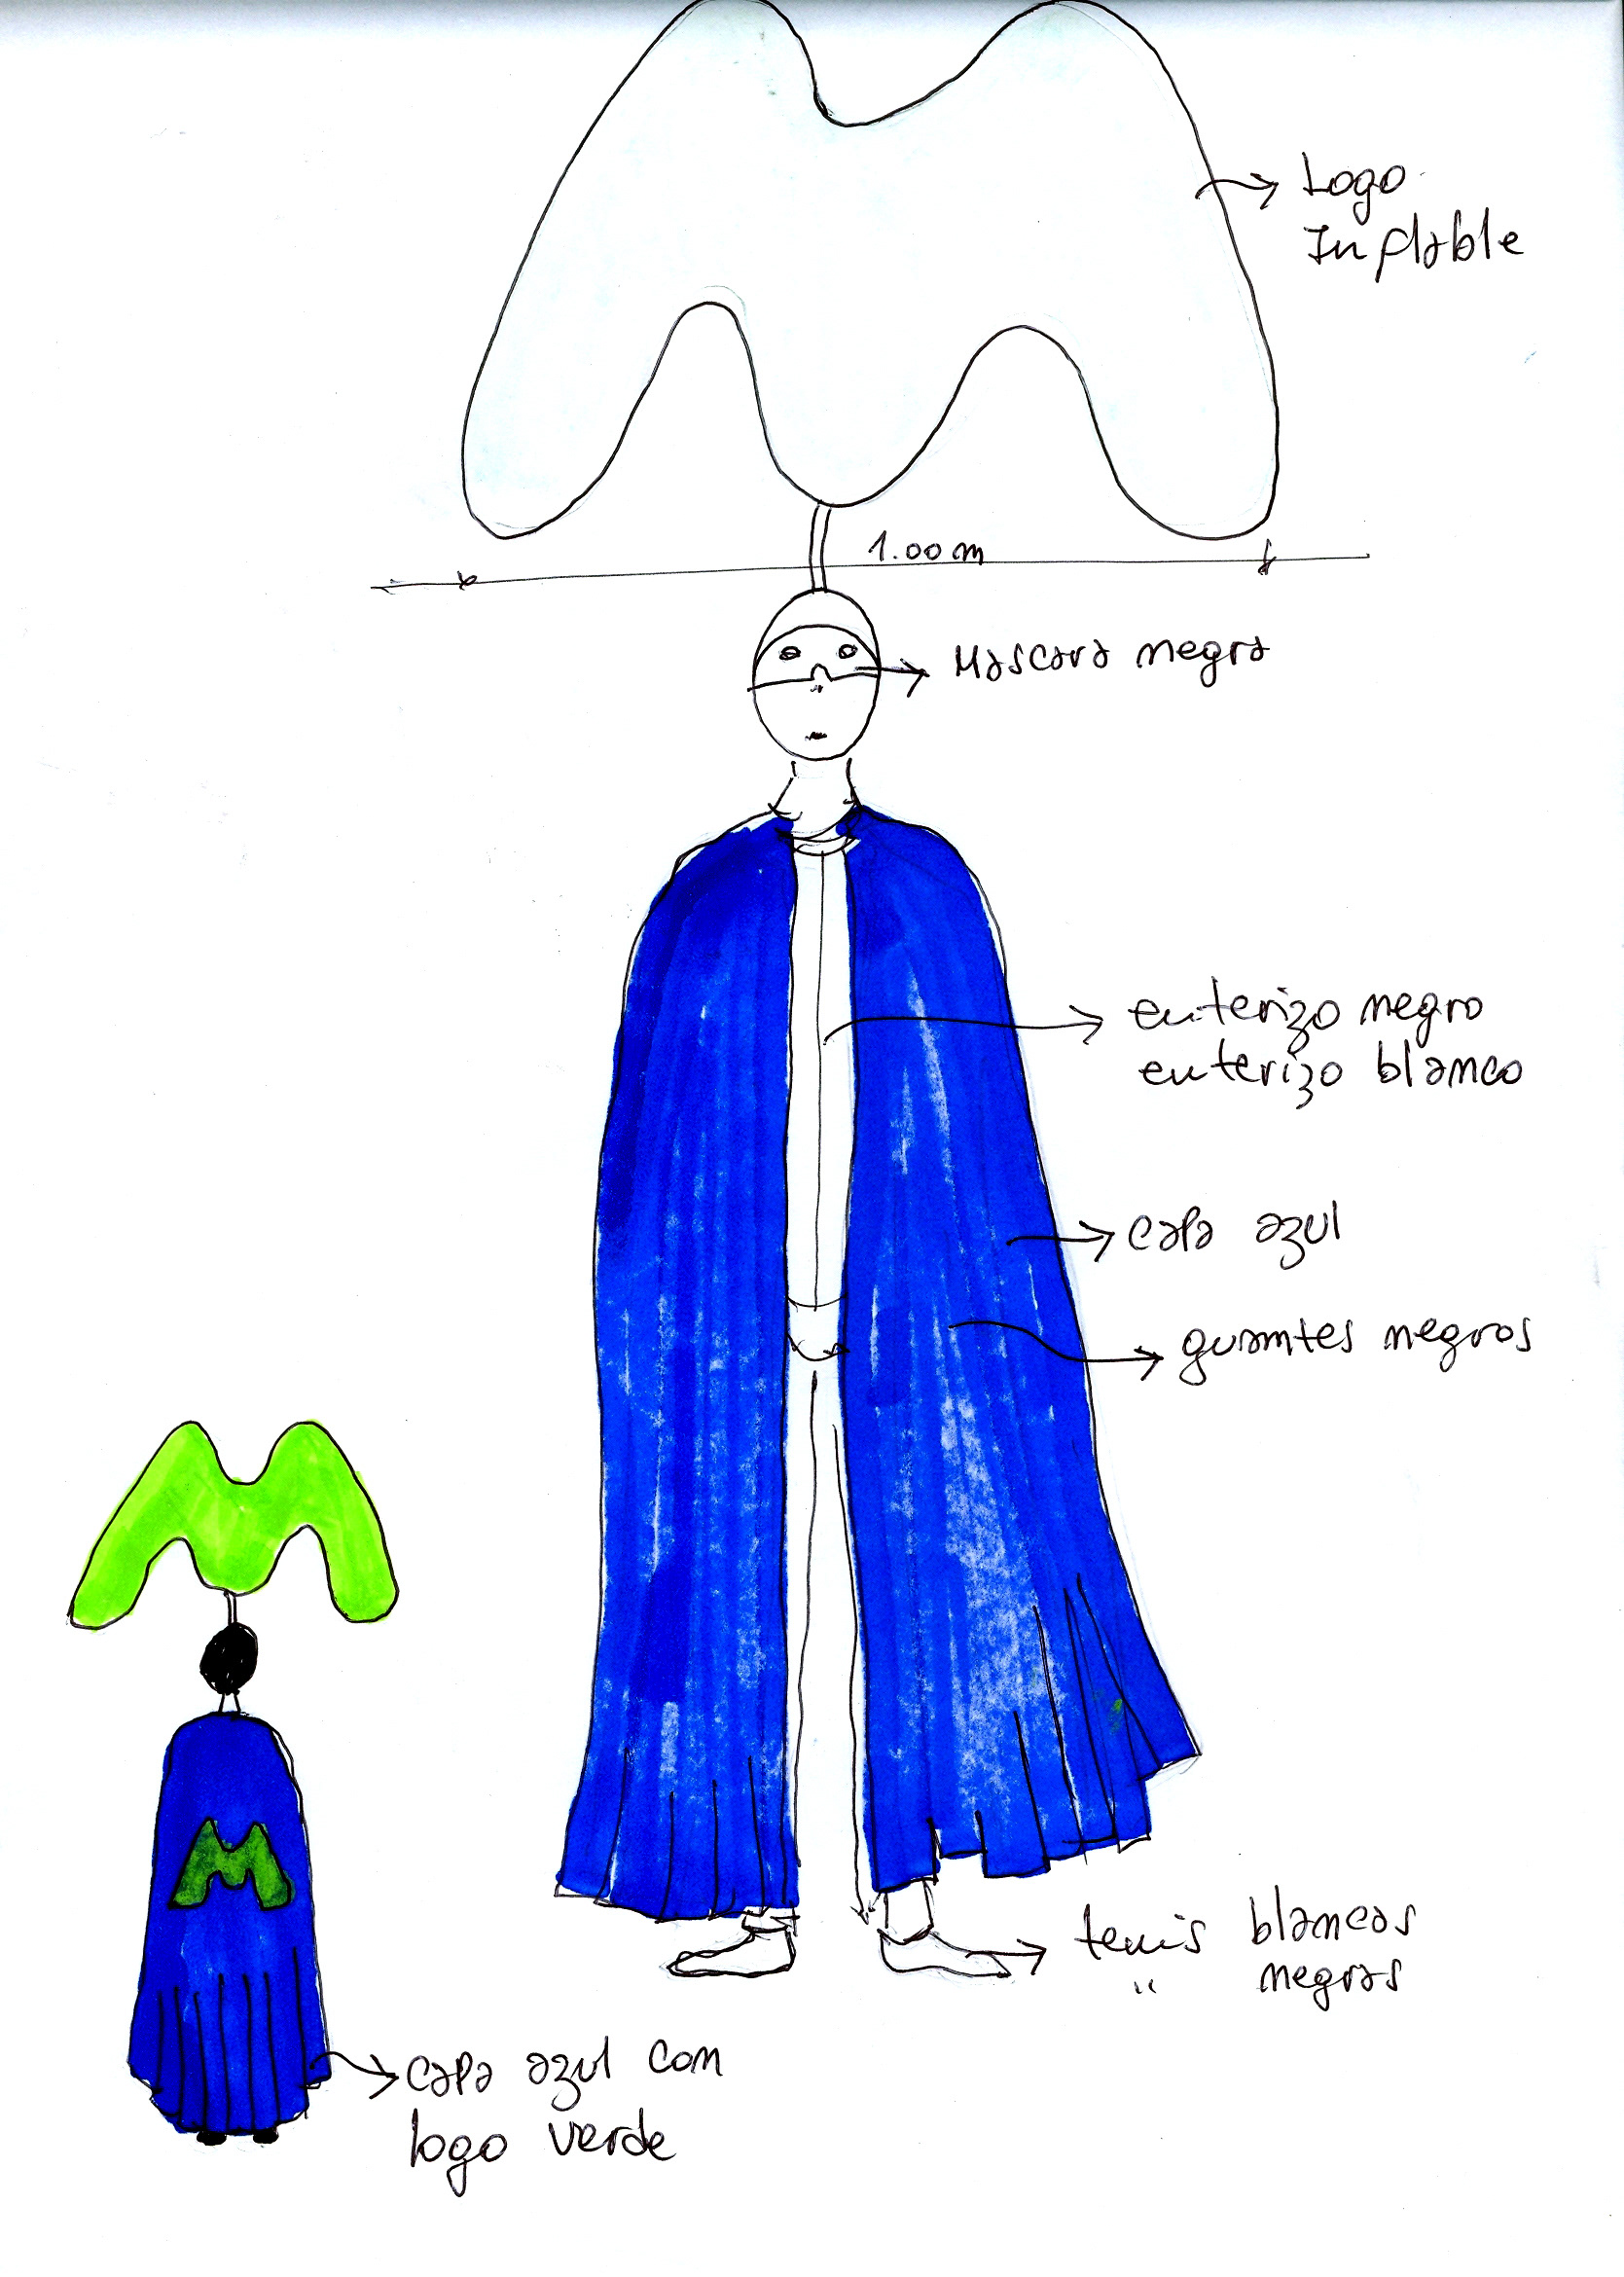 Logo
Inflable
1.00 m
Mascara negra
enterizo negro
enterizo blanco
capa azul
guantes negros
tenis blancos
" negras
capa azul con
logo verde